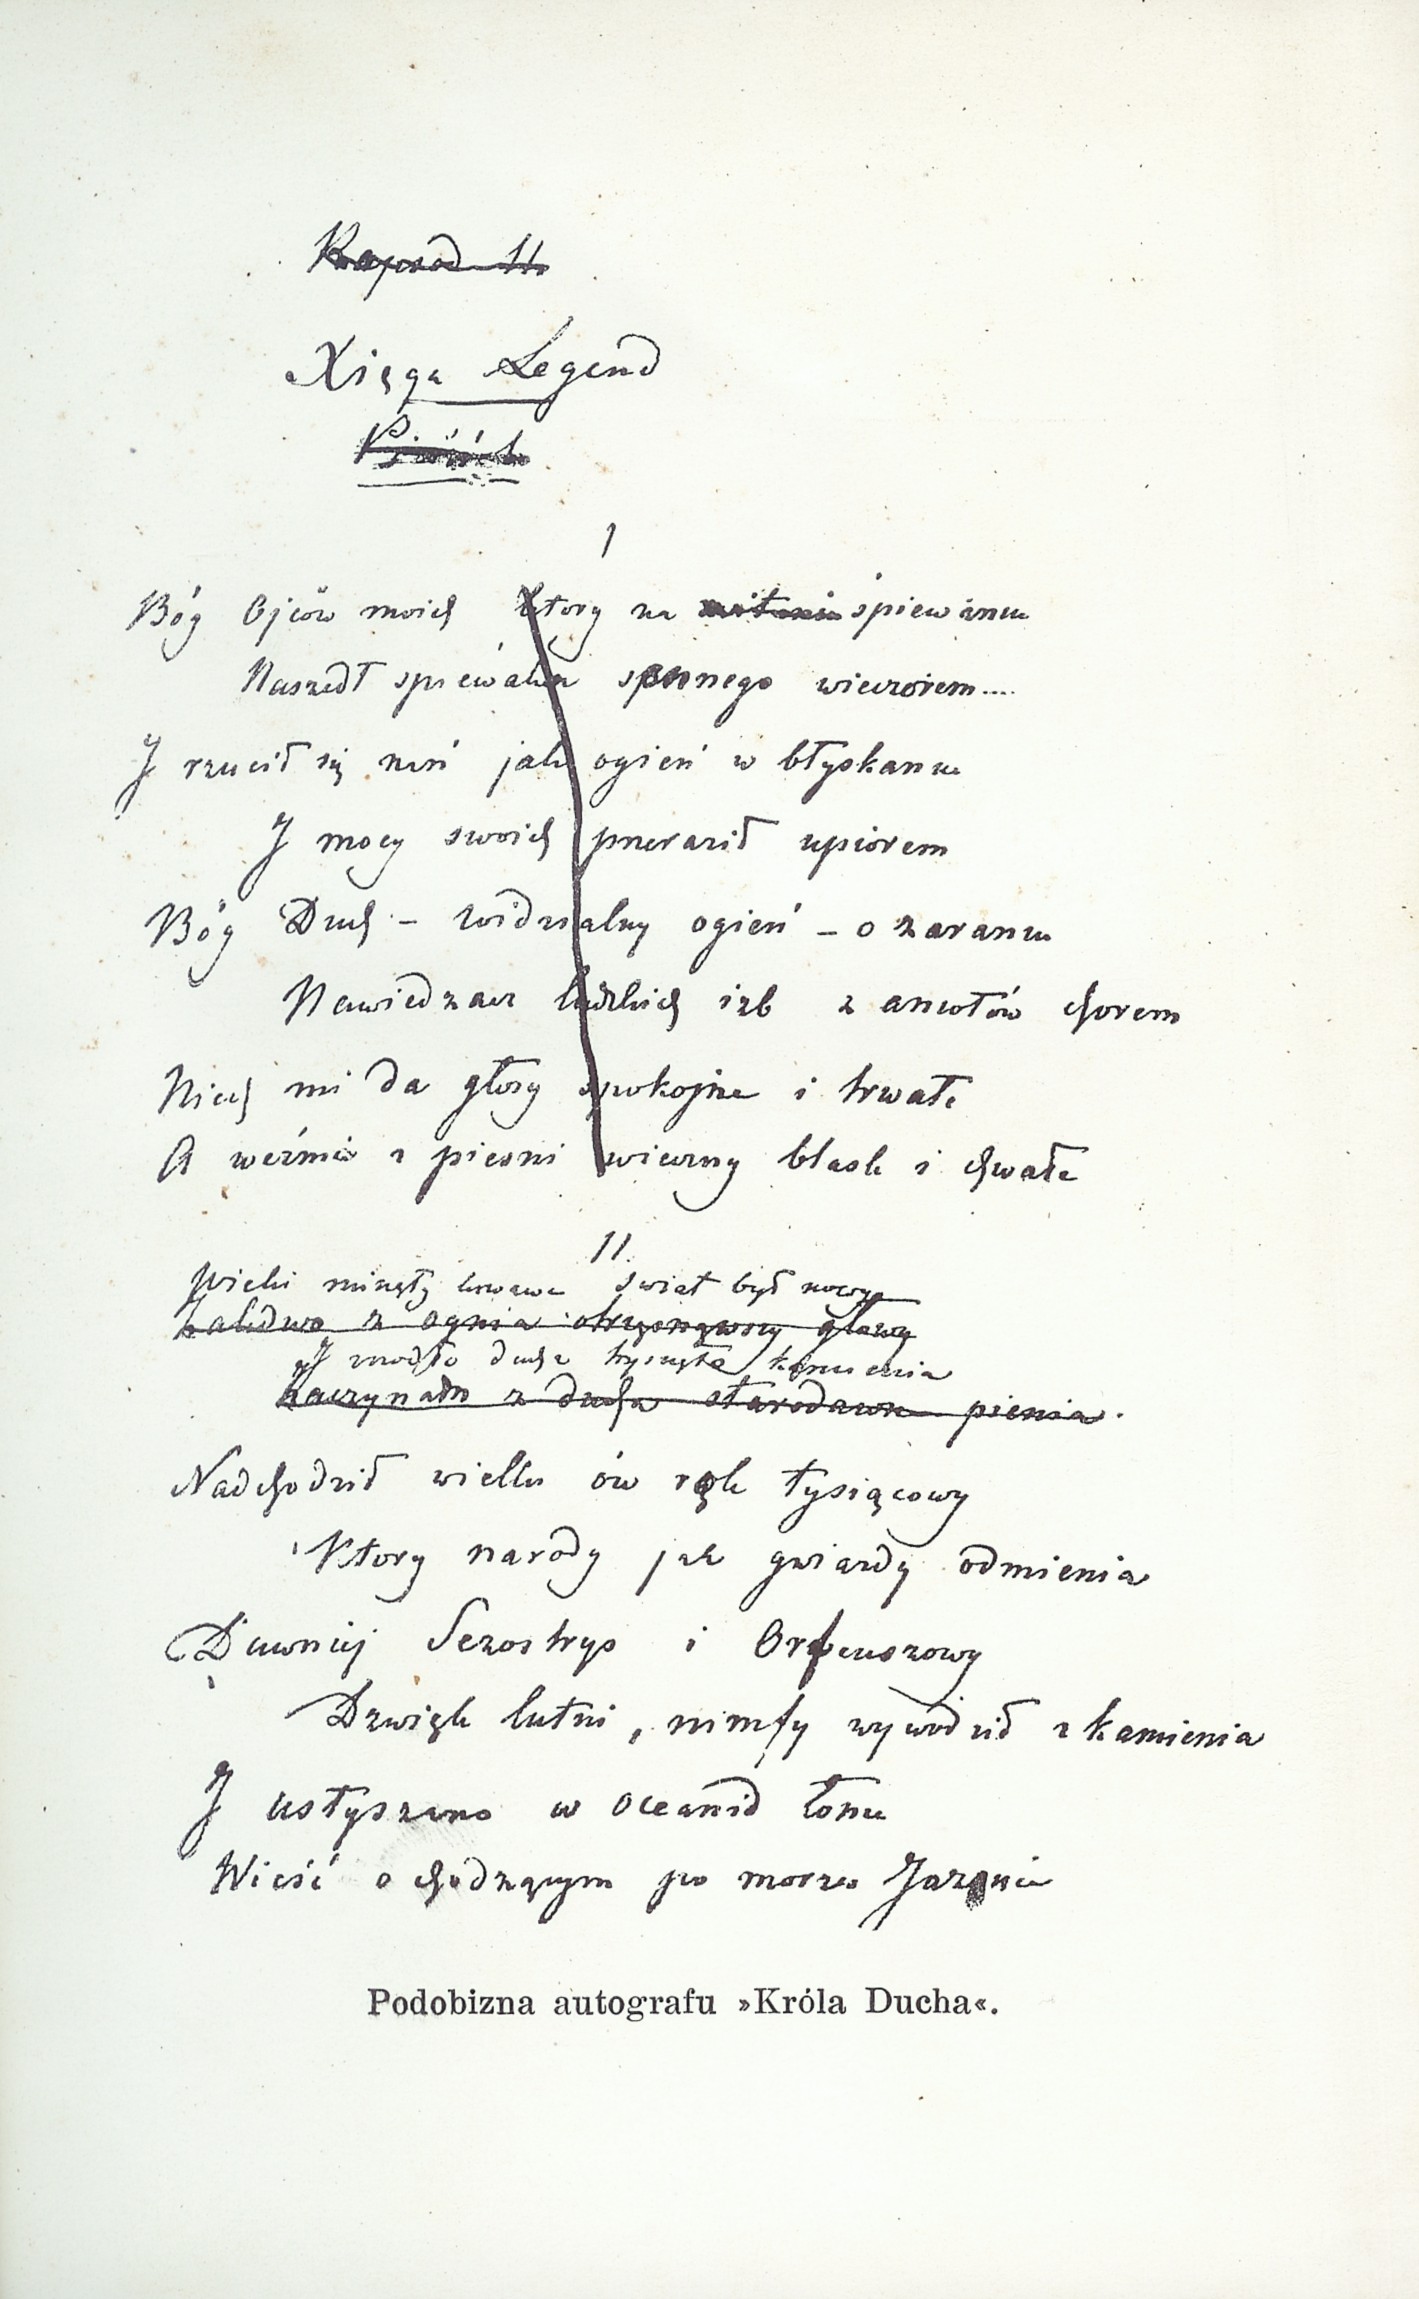 Rapsod II
Xięga Legend
Pieśń
1
Bóg Ojców moich ktory na śpiewaniu
Naszedł spiewaka sennego wieczorem....
I rzucił się nań jak ogień w błyskaniu
I mocy swoich przeraził upiorem
Bóg Duch – widzialny ogień – o zaraniu
Nawiedzacz ludzkich izb z aniołów chorem
Niech mi da głosy spokojne i trwałe
A weźmie z piesni wieczny blask i chwałe
II.
Wieki minęły świat był nowy
Zaledwo z ognia otrząsnąwszy głowy
I
Zaczynało z ducha starodawne pienia.
Nadchodził wielki ów rok tysiącowy
Ktory narody jak gwiazdy odmienia
Dawniej Sezostrys i Orfeuszowy
Dzwięk lutni, nimfy wywodził z kamienia
I usłyszano w oceanid łonie
Wieść o chodzącym po morzu Jazonie
Podobizna autografu »Króla Ducha«.